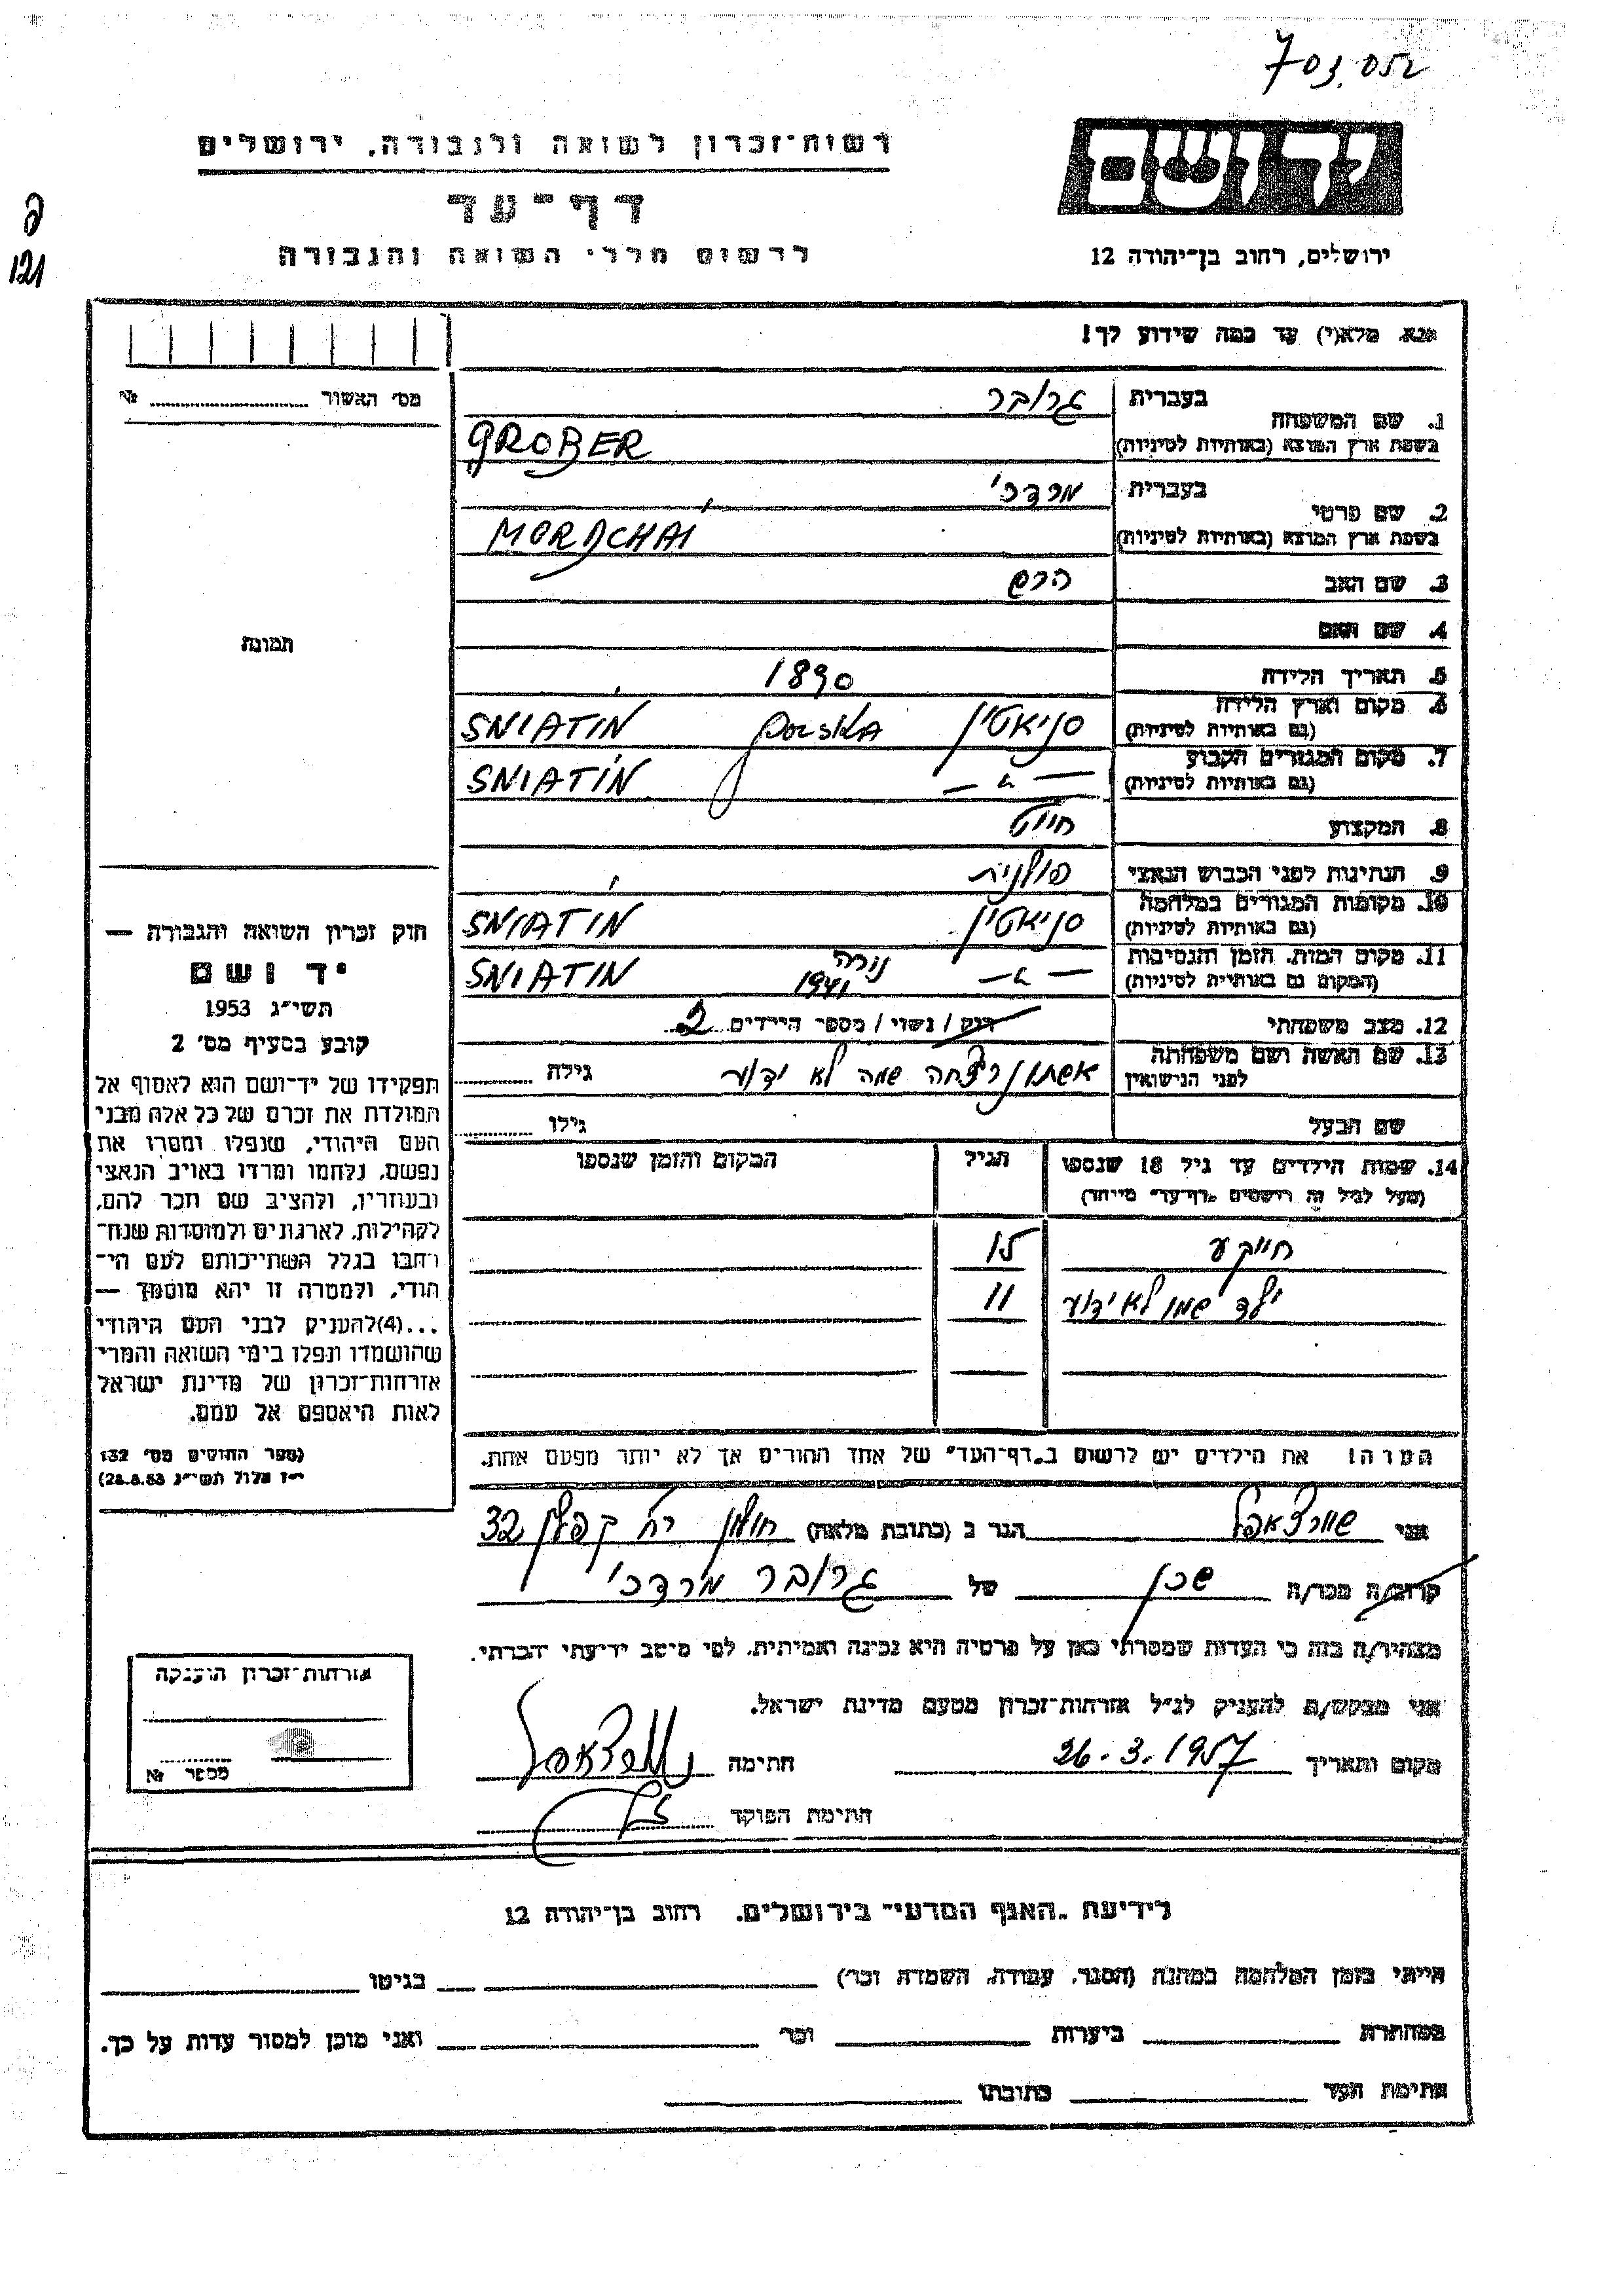 703.052
רשות־זכרון לשואה ולגבורה, ירושלים
יד ושם
דף־עד
ירושלים, רחוב בן־יהודה 12
לרשום חללי השואה והגבורה
121
נא מלא(י) עד כמה שידוע לך!
מס' האשור № 
1. שם המשפחה
בעברית גרובר
בשפת ארץ המוצא (באותיות לטיניות) GROBER
2. שם פרטי
בעברית מרדכי
בשפת ארץ המוצא (באותיות לטיניות) MORDCHAI
3. שם האב הרש
4. שם האם
5. תאריך הלידה 1890
6. מקום וארץ הלידה (גם באותיות לטיניות) סניאטין POLSKA SNIATIN
7. מקום המגורים הקבוע (גם באותיות לטיניות) — " — SNIATIN
8. המקצוע חייט
9. הנתינות לפני הכבוש הנאצי פולנית
10. מקומות המגורים במלחמה (גם באותיות לטיניות) סניאטין SNIATIN
11. מקום המות, הזמן והנסיבות (המקום גם באותיות לטיניות) — " — נורה 1941 SNIATIN
12. מצב משפחתי רוק / נשוי / מספר הילדים 2
13. שם האשה ושם משפחתה לפני הנישואין אשתו נרצחה שמה לא ידוע גילה
שם הבעל גילו
14. שמות הילדים עד גיל 18 שנספו
(מעל לגיל זה רושמים "דף־עד" מיוחד)
הגיל
המקום והזמן שנספו
חייקע 15
ילד שמו לא ידוע 11
הערה! את הילדים יש לרשום ב"דף־העד" של אחד ההורים אך לא יותר מפעם אחת.
תמונת
חוק זכרון השואה והגבורה —
יד ושם
תשי"ג 1953
קובע בסעיף מס' 2
תפקידו של יד־ושם הוא לאסוף אל
המולדת את זכרם של כל אלה מבני
העם היהודי, שנפלו ומסרו את
נפשם, נלחמו ומרדו באויב הנאצי
ובעוזריו, ולהציב שם וזכר להם,
לקהילות, לארגונים ולמוסדות שנח־
רבו בגלל השתייכותם לעם הי־
הודי, ולמטרה זו יהא מוסמך —
...(4) להעניק לבני העם היהודי
שהושמדו ונפלו בימי השואה והמרי
אזרחות־זכרון של מדינת ישראל
לאות היאספם אל עמם.
(ספר החוקים מס' 132
י"ז אלול תשי"ג 28.8.53)
אני שוורצאפל הגר ב (כתובת מלאה) חולון קפלן 32
קרוב/ה מכר/ה שכן של גרובר מרדכי
מצהיר/ה בזה כי העדות שמסרתי כאן על פרטיה היא נכונה ואמיתית, לפי מיטב ידיעתי והכרתי.
אני מבקש/ת להעניק לנ"ל אזרחות־זכרון מטעם מדינת ישראל.
מקום ותאריך 26.3.1957 חתימה
חתימת הפוקד
אזרחות־זכרון הוענקה
מספר №
לידיעת "האגף המדעי" בירושלים, רחוב בן־יהודה 12
הייתי בזמן המלחמה במחנה (הסגר, עבודה, השמדה וכו') בגיטו
במחתרת ביערות וכו' ואני מוכן למסור עדות על כך.
חתימת העד כתובתו